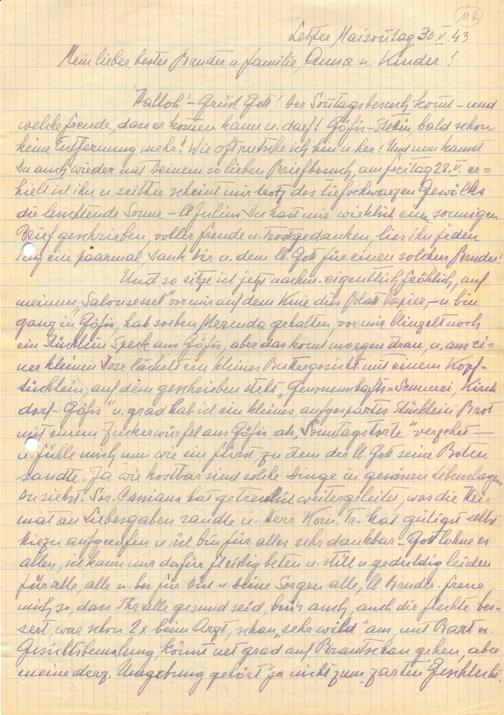 112
Letzter Maisonntag 30.V.43
Mein lieber bester Bruder u. Familie, Anna u. Kinder!
Halloh! – Grüß Gott! Der Sonntagsbesuch komt – und
welche Freude, dass er kommen kann u. darf! Göfis – Stein bald schon
keine Entfernung mehr! Wie oft rutsche ich hin u. her! Und nun kamst
Du auch wieder mit Deinem so lieben Briefbesuch, am Freitag 28.V. er=
hielt ich ihn u. seither scheint mir trotz des tiefschwarzen Gewölks
die leuchtende Sonne – lb Julius Du hast mir wirklich einen sonnigen
Brief geschrieben, voller Freude u. Trostgedanken, lies ihn jeden
Tag ein paarmal. Dank dir u. dem lb Gott für einen solchen Bruder!
Und so sitze ich jetzt nachm. eigentlich fröhlich, auf
meinem "Salonsessel" vor mir auf dem Knie das Papier, – u. bin
ganz in Göfis, hab soeben gehalten, vor mir blinzelt noch
ein Stücklein Speck aus Göfis, aber das komt morgen dran, u. aus ei=
ner kleinen Dose lächelt ein kleines Buttergesicht mit einem Kopf=
tüchlein, auf dem geschrieben steht „Genossenschafts-Sennerei, Kirch
dorf – Göfis" u. grad hab ich ein kleines, aufgespartes Stücklein Brot
mit einem Zuckerwürfel aus Göfis als „Sonntagstorte" verzehrt –
u. fühle mich nun wie ein Fürst zu dem der lb Gott seine Boten
sandte. Ja wie kostbar sind solche Dinge in gewissen Lebenslagen,
Du siehst. Sr. Cassiana hat getreulich weitergeleitet, was die Hei=
mat an Liebesgaben sandte u. Herr hat gütigst selbst
hiezu aufgerufen u. ich bin für alles sehr dankbar – Gott lohne es
allen, ich kann nur dafür fleißig beten u. still u. geduldig leiden
für alle, alle u. bes. für Dich u. Deine Sorgen alle, lb Bruder. Freue
mich so, dass Ihr alle gesund seid, bins auch, auch die Flechte bes=
sert, war schon 2x beim Arzt, schau „sehr wild" aus, mit Bart u.
Gesichtsbemalung, könnt net grad auf Brautschau gehen, aber
meine derz. Umgebung gehört ja nicht zum zarten Geschlecht.